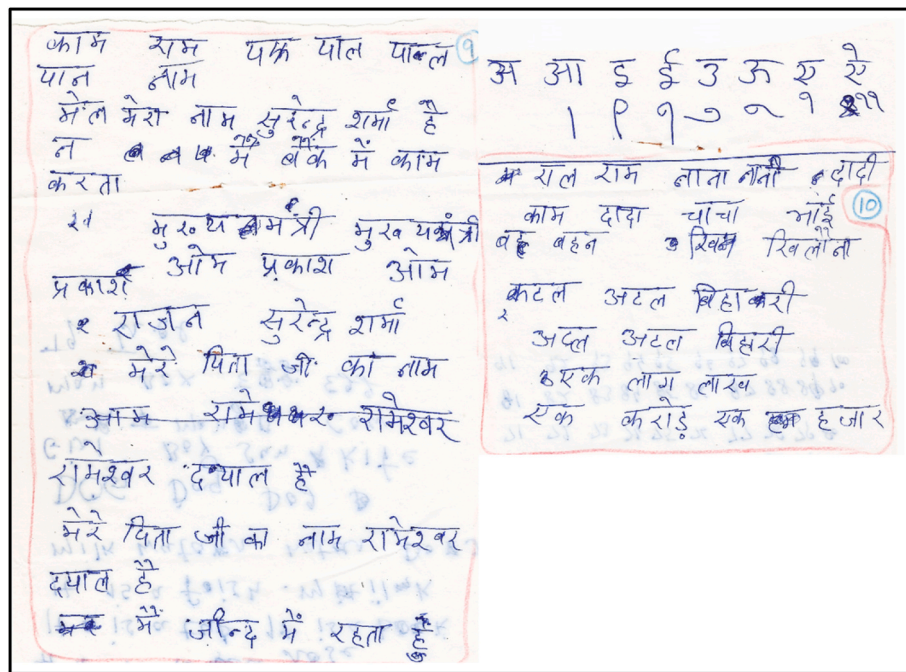 काम राम पक पाल पाल 9
पान नाम
मेल मेरा नाम सुरेन्द्र शर्मा है
न ब ब मै बैंक में काम
करता
मुख्य मंत्री मुख्यमंत्री
ओम प्रकाश ओम
प्रकाश
राजन सुरेन्द्र शर्मा
मेरे पिता जी का नाम
रामेश्वर
रामेश्वर दयाल है
मेरे पिता जी का नाम रामेश्वर
दयाल है
मैं जीन्द में रहता हूँ
अ आ इ ई उ ऊ ए ऐ
राल राम नाना नानी दादी
काम दादा चाचा भाई 10
बहन खिलौना
कटल अटल बिहारी
अदल अटल बिहारी
एक लाग लाख
एक करोड़ एक हजार